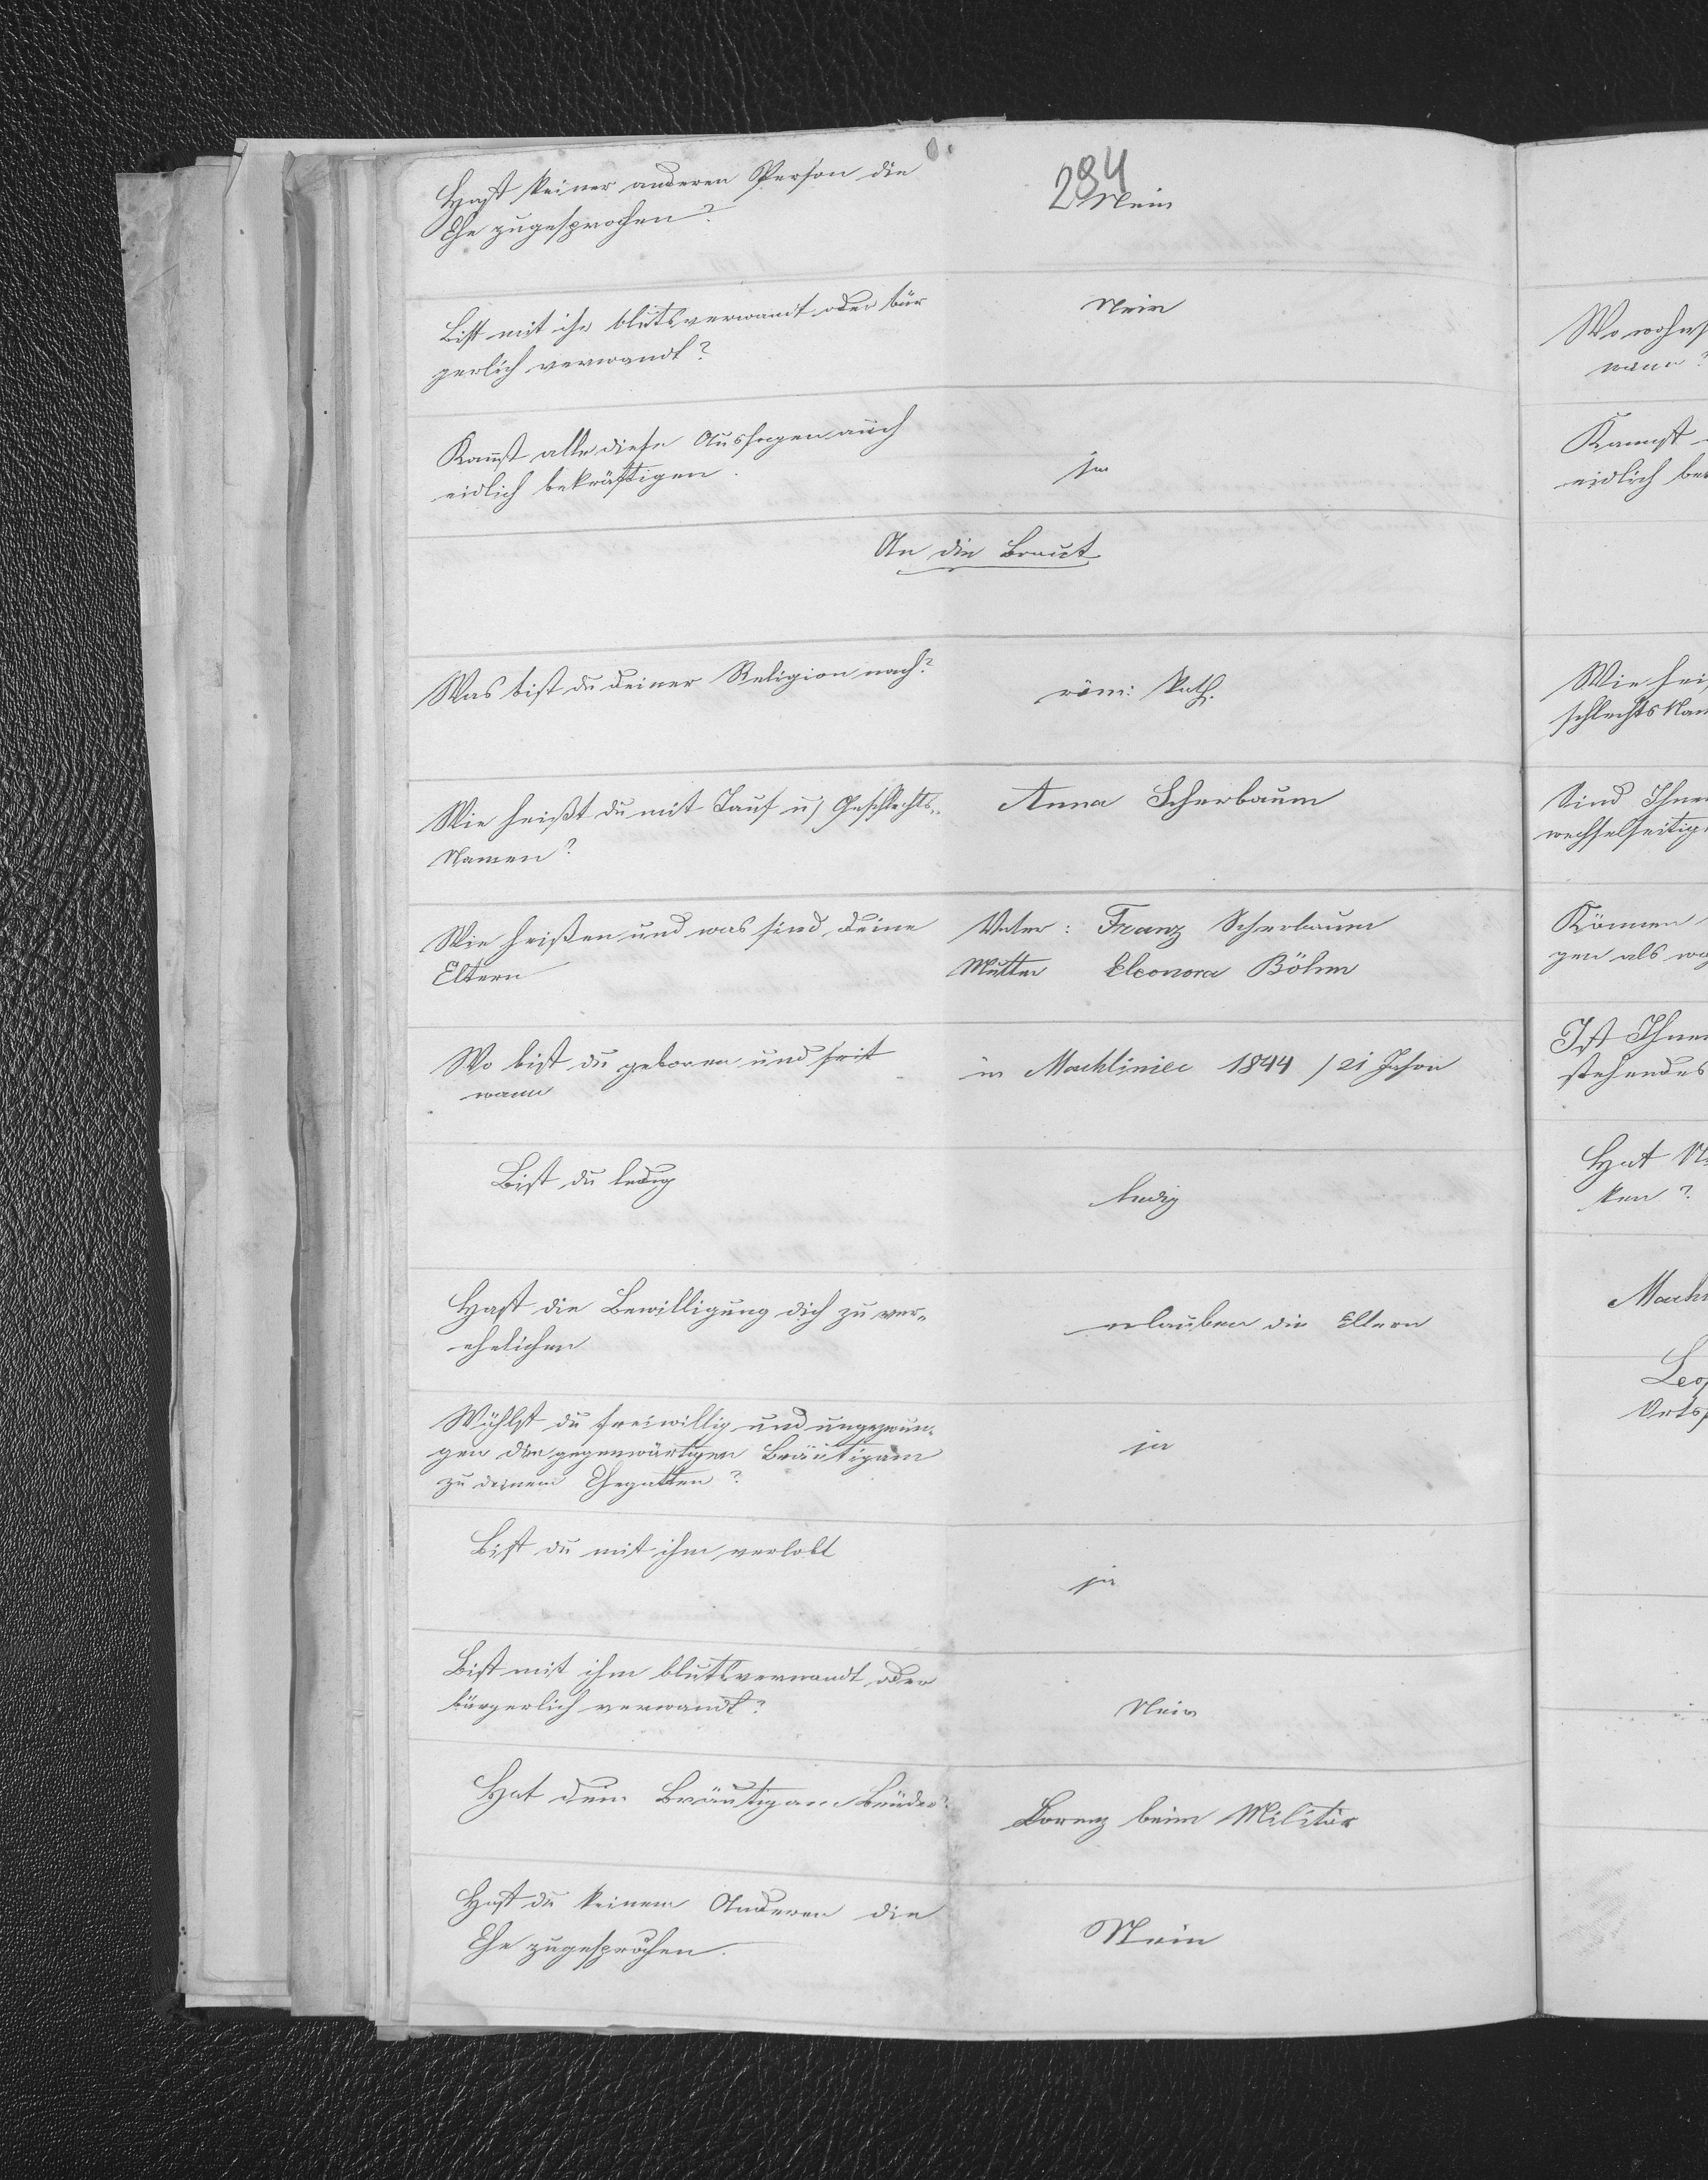 284
Hast keiner anderen Person die
Ehe zugesprochen?
Nein
Bist mit ihr blutsverwandt oder bür
gerlich verwandt?
Nein
Kannst alle diese Aussagen auch
eidlich bekräftigen.
ja
An die Braut
Was bist du deiner Religion nach?
röm: kath.
Wie heißt du mit Tauf u/ Geschlechts-
Namen?
Anna Scherbaum
Wie heißen und was sind deine
Eltern
Vater: Franz Scherbaum
Mutter Eleonora Böhm
Wo bist du geboren und seit
wann
in Machliniec 1844 / 21 Jahre
Bist du ledig
ledig
Hast die Bewilligung dich zu ver-
ehelichen
erlauben die Eltern
Wählst du freiwillig und ungezwun-
gen den gegenwärtigen Bräutigam
zu deinem Ehegatten?
ja
Bist du mit ihm verlobt
ja
Bist mit ihm blutsverwandt oder
bürgerlich verwandt?
Nein
Hat dein Bräutigam Brüder?
Lorenz beim Militär
Hast du keinem Anderen die
Ehe zugesprochen.
Nein
Wo wohnst
wann?
Kannst
eidlich be
Wie hei
schlechts Nam
Sind Ihnen
wechselseitig
Können
gen als wa
Ist Ihnen
stehendes
Hat
ken?
Mach
Leo
Orts